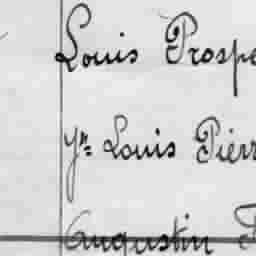 Louis Prospe
Yn= Louis Pierr
Augustin